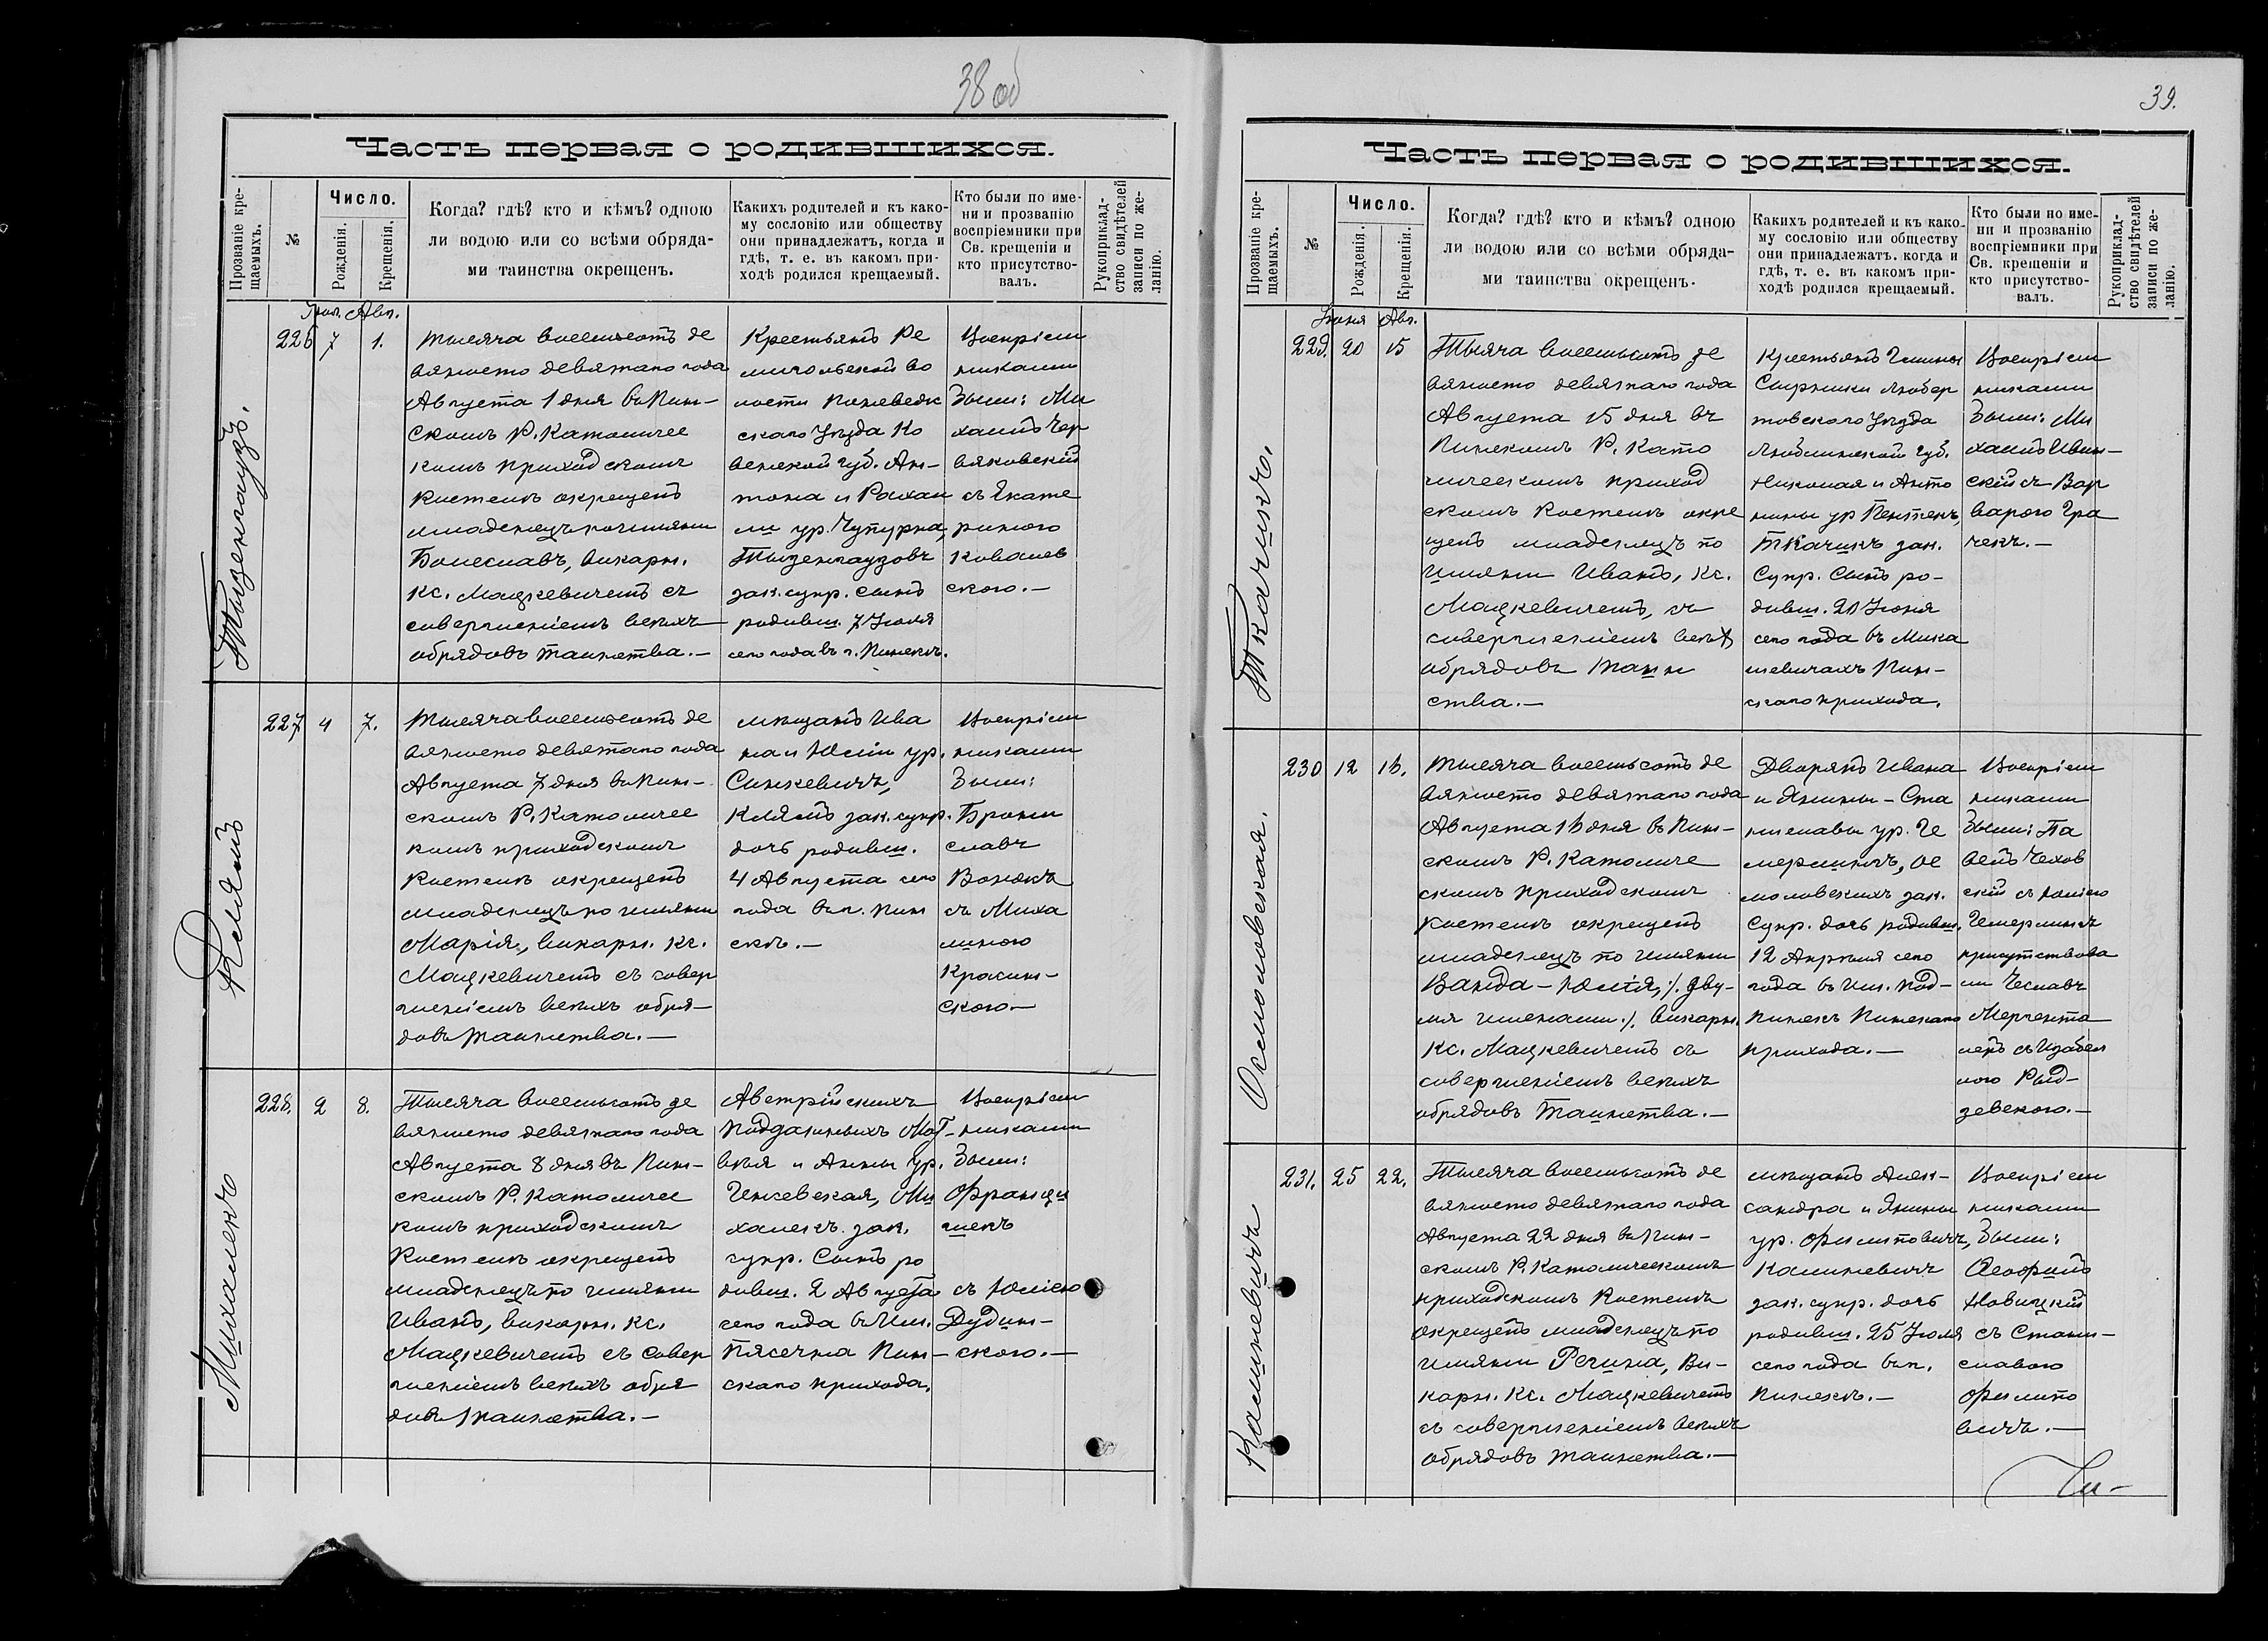 38 об
Часть первая о родившихся.
Прозваніе кре-
щаемыхъ.
№
Число.
Рожденія.
Крещенія.
Когда? гдѣ? кто и кѣмъ? одною
ли водою или со всѣми обряда-
ми таинства окрещенъ.
Какихъ родителей и къ како-
му сословію или обществу
они принадлежатъ, когда и
гдѣ, т. е. въ какомъ при-
ходѣ родился крещаемый.
Кто были по име-
ни и прозванію
воспріемники при
Св. крещеніи и
кто присутство-
валъ.
Рукоприклад-
ство свидѣтелей
записи по же-
ланію.
Іюл. Авг.
Тызенгаузъ.
226 7 1.
Тысяча восемьсотъ де
вяносто девятаго года
Августа 1 дня въ Пин-
скомъ Р. Католичес
комъ приходскомъ
Костелѣ окрещенъ
младенецъ по имяни
Болеславъ, викарн.
кс. Мацкевичемъ съ
совершеніемъ всѣхъ
обрядовъ таинства.—
Крестьянъ Ре
мигольской во
лости Поневеж
скаго Уѣзда Ко
венской губ. Ан-
тона и Рахаи
ли ур. Чупурна,
Тызенгаузовъ
зак. супр. сынъ
родивш. 7 Іюля
сего года въ г. Пинскѣ.
Воспріем
никами
были: Ми
хаилъ Чер
вяковскій
съ Екате
риною
Ковалев
ского.—
Клямъ
227 4 7.
Тысяча восемьсотъ де
вяносто девятаго года
Августа 7 дня въ Пин-
скомъ Р. Католичес
комъ приходскомъ
Костелѣ окрещенъ
младенецъ по имяни
Марія, викарн. кс.
Мацкевичемъ съ совер
шеніемъ всѣхъ обря-
довъ таинства.—
мѣщанъ Ива
на и Юліи ур.
Синкевичъ,
Клямъ зак. супр.
дочь родивш.
4 Августа сего
года въ г. Пин
скѣ.—
Воспріем
никами
были:
Брони
славъ
Вонякъ
съ Миха
линою
Красин-
ского—
Михалекъ
228. 2 8.
Тысяча восемьсотъ де
вяносто девятаго года
Августа 8 дня въ Пин-
скомъ Р. Католичес
комъ приходскомъ
Костелѣ окрещенъ
младенецъ по имяни
Иванъ, викарн. кс.
Мацкевичемъ съ совер
шеніемъ всѣхъ обря
довъ таинства.—
Австрійскихъ
подданныхъ Мат-
вѣя и Анны ур.
Генсевская, Ми
халекъ зак.
супр. Сынъ ро
дивш. 2 Августа
сего года въ Им.
Пясечна Пин-
скаго прихода.
Воспріем
никами
были:
Францы
шекъ
съ Юліею
Дудин-
ского.—
39.
Часть первая о родившихся.
Прозваніе кре-
щаемыхъ.
№
Число.
Рожденія.
Крещенія.
Когда? гдѣ? кто и кѣмъ? одною
ли водою или со всѣми обряда-
ми таинства окрещенъ.
Какихъ родителей и къ како-
му сословію или обществу
они принадлежатъ. когда и
гдѣ, т. е. въ какомъ при-
ходѣ родился крещаемый.
Кто были по име-
ни и прозванію
воспріемники при
Св. крещеніи и
кто присутство-
валъ.
Рукоприклад-
ство свидѣтелей
записи по же-
ланію.
Іюня Авг.
Ткачикъ.
229. 20 15
Тысяча восемьсотъ де
вяносто девятаго года
Августа 15 дня въ
Пинскомъ Р. Като
лическомъ приход
скомъ Костелѣ окре
щенъ младенецъ по
имяни Иванъ, кс.
Мацкевичемъ, съ
совершеніемъ всѣхъ
обрядовъ таин
ства.—
Крестьянъ Гмины
Сырники Любер
товского Уѣзда
Люблинской губ.
Николая и Анто
нины ур Пентекъ,
Ткачикъ зак.
Супр. Сынъ ро-
дивш. 20 Іюня
сего года въ Мика
шевичахъ Пин-
скаго прихода.
Воспріем
никами
были: Ми
хаилъ Ивин-
скій съ Вар
варою Гра
чекъ.—
Осмоловская.
230 12 16.
Тысяча восемьсотъ де
вяносто девятаго года
Августа 16 дня въ Пин-
скомъ Р. Католиче
скомъ приходскомъ
Костелѣ окрещенъ
младенецъ по имяни
Ванда-Юлія, /. дву-
мя именами ./. викарн.
кс. Мацкевичемъ съ
совершеніемъ всѣхъ
обрядовъ Таинства.—
Дворянъ Ивана
и Янины-Ста
ниславы ур. Че
мерникъ, Ос
моловскихъ зак.
Супр. дочь родивш.
12 Апрѣля сего
года въ им. Под-
пинскъ Пинскаго
прихода.—
Воспріем
никами
были: Па
велъ Чехов
скій съ Юліею
Чемерникъ
присутствова
ли Чеславъ
Мергента
лемъ съ Изабел
лою Рыд-
зевского.—
Калиневичъ
231. 25 22.
Тысяча восемьсотъ де
вяносто девятаго года
Августа 22 дня въ Пин-
скомъ Р. Католическомъ
приходскомъ Костелѣ
окрещенъ младенецъ по
имяни Регина, Ви-
карн. Кс. Мацкевичемъ
съ совершеніемъ всѣхъ
обрядовъ таинства.—
мѣщанъ Алек-
сандра и Янины
ур. Филиповичъ,
Калиневичъ
зак. супр. дочь
родивш. 25 Іюля
сего года въ г.
Пинскѣ.—
Воспріем
никами
были:
Ѳеофилъ
Новицкій
съ Стани-
славою
Филипо
вичъ.—